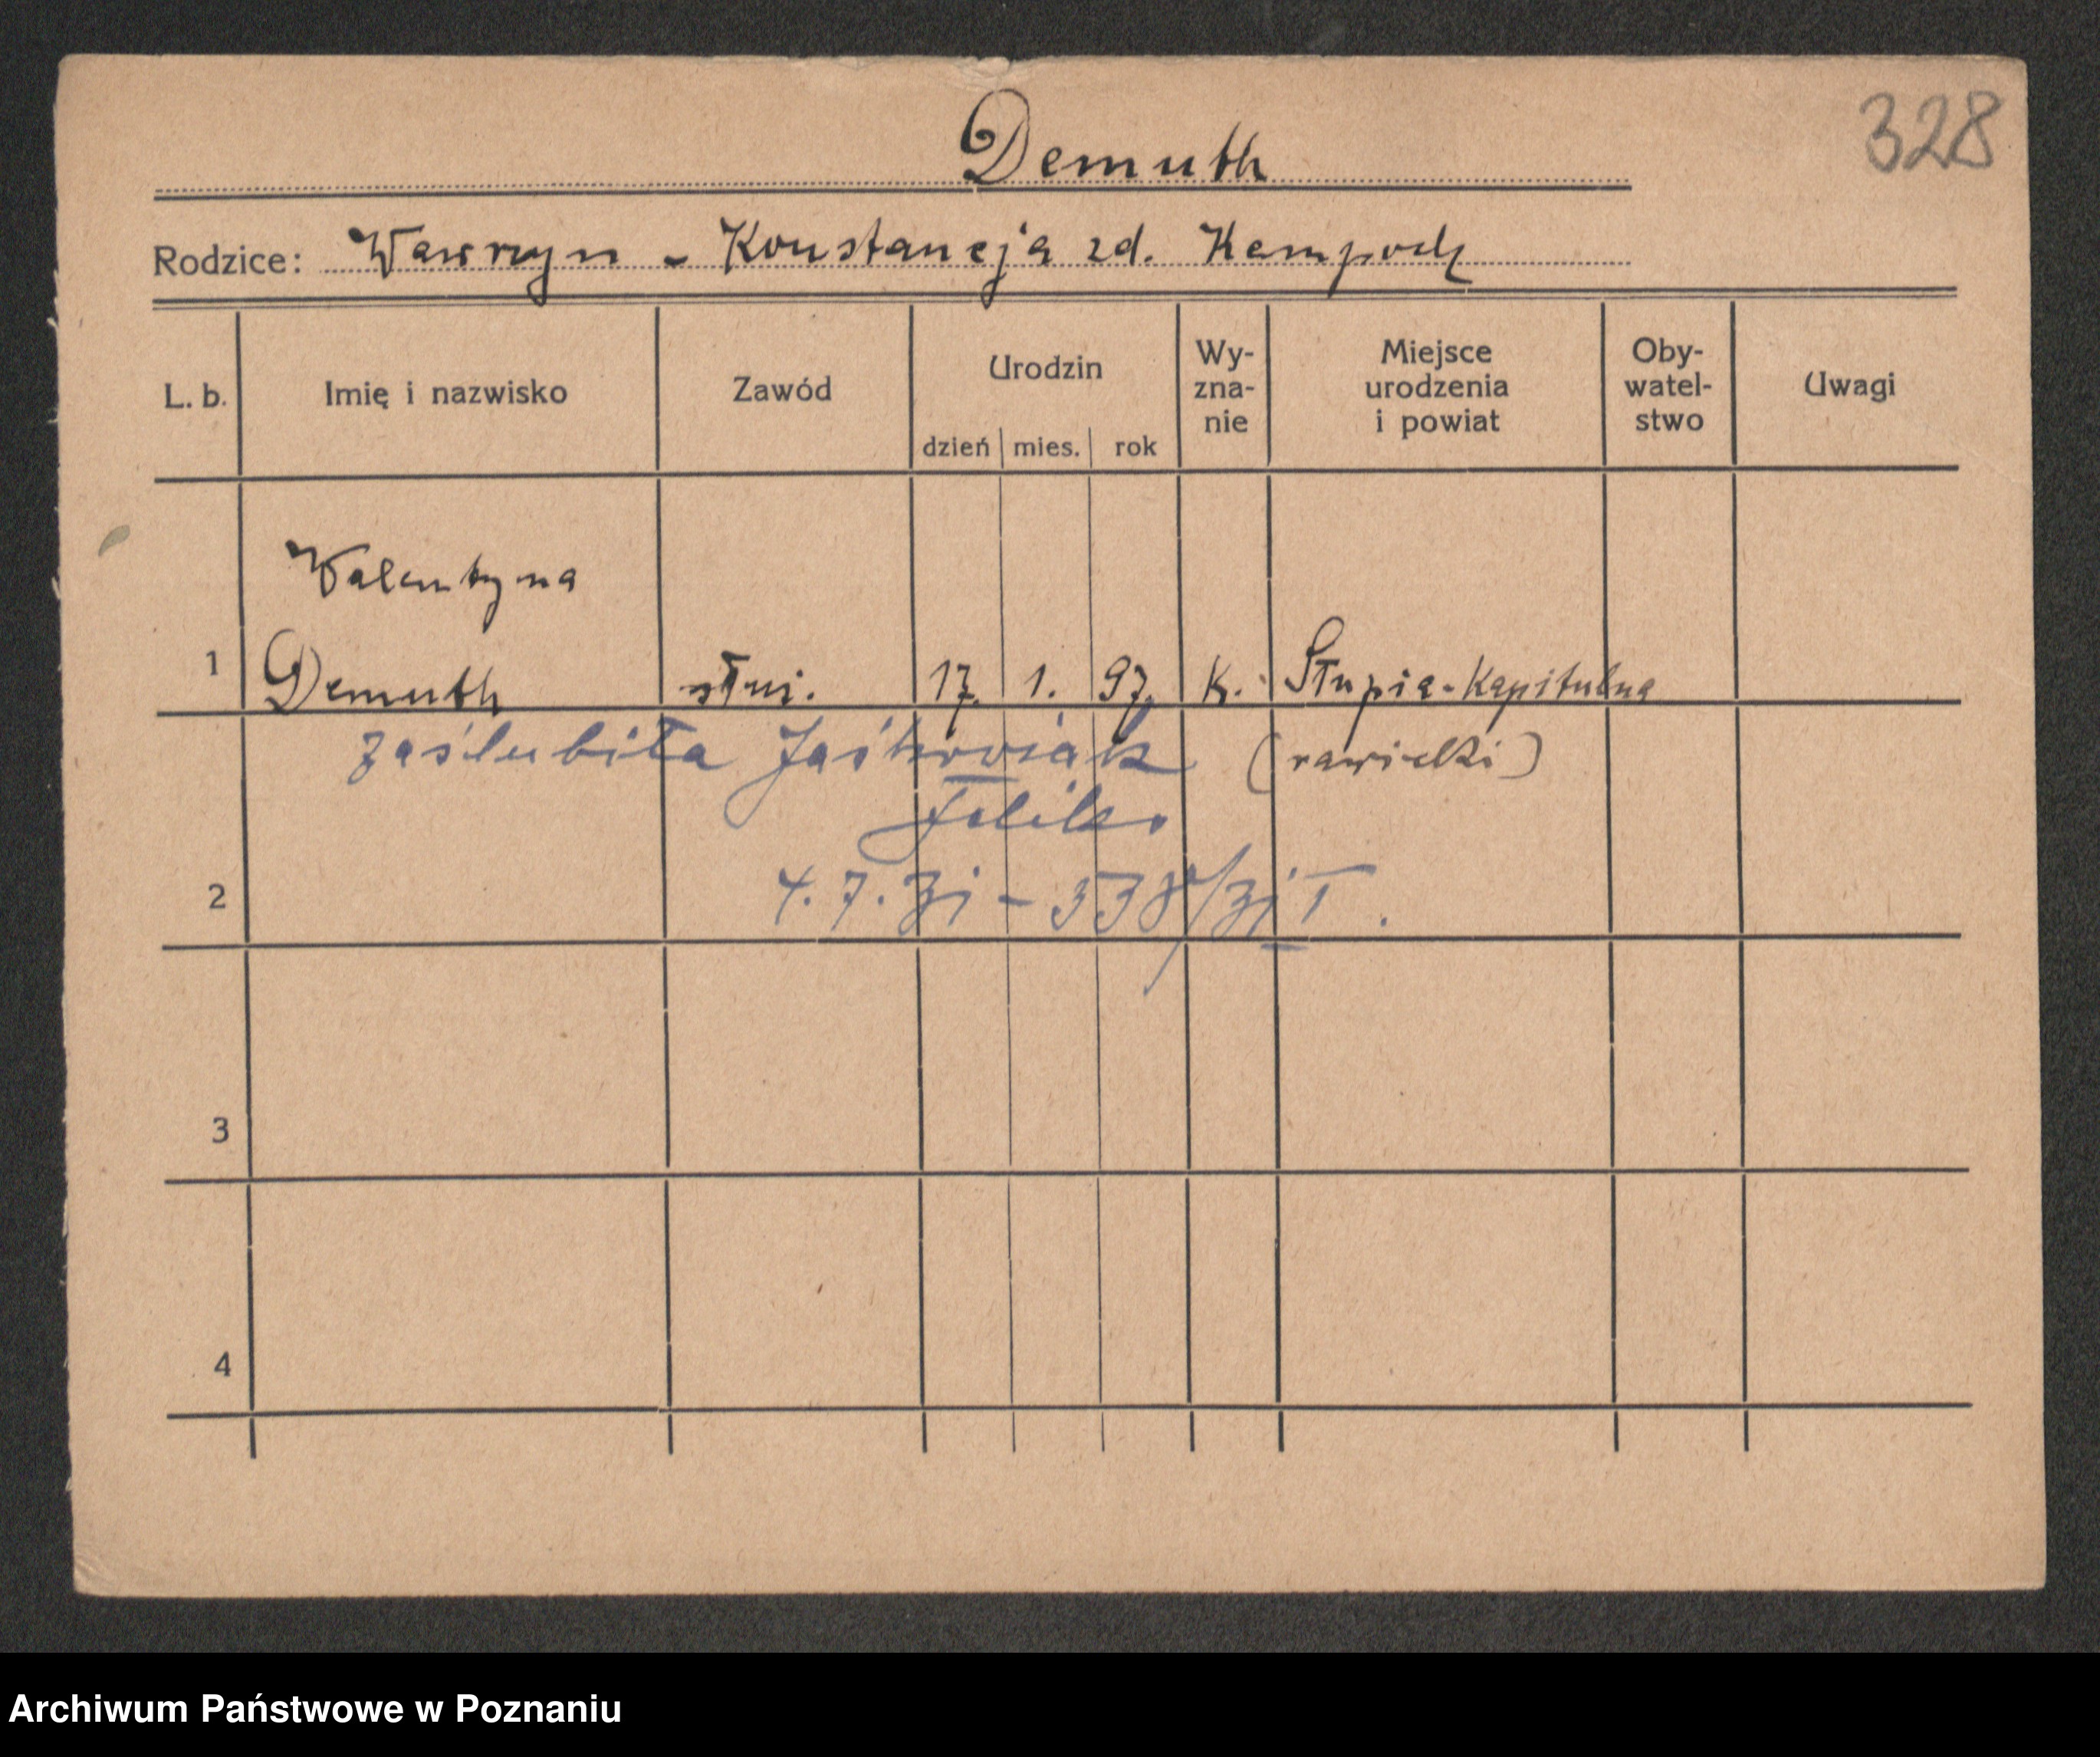 328
Demuth
Rodzice: Wawrzyn - Konstancja zd. Kempock
L. b. Imię i nazwisko Zawód Urodzin dzień mies. rok Wy-zna-nie Miejsce urodzenia i powiat Oby-watel-stwo Uwagi
Walentyna
1 Demuth służ. 17. 1. 97. K. Słupia-Kapitulna
zaślubiła Jaśkowiak (rawicki)
Feliks
2 4.7.31 - 538/31 I.
3
4
Archiwum Państwowe w Poznaniu